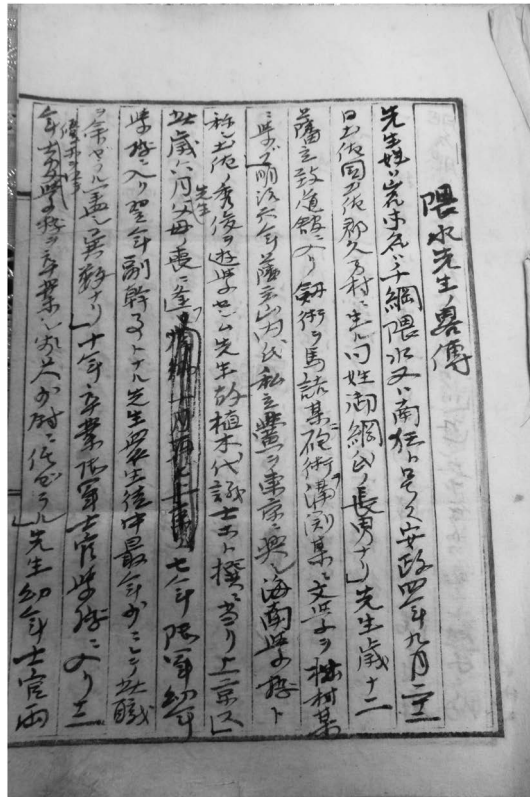 隈水先生ノ畧傳
先生姓ハ岩本名ハ千綱隈水又ハ南狂ト号ス安政四年九月二十
日土佐国土佐郡久万村ニ生ル同姓南網氏ノ長男ナリ」先生歳十二
藩立致道館ニ入リ剣術ヲ馬詰某砲術ヲ溝渕某ニ文学ヲ松村某
ニ学ブ」明治六年藩主山内氏私立黌ヲ東京ニ興シ海南学校ト
称シ土佐ノ秀俊ヲ遊学セシム先生故植木代議士等ト撰ニ当リ上京ス」
此歳六月先生父母ノ喪ニ逢フ 七年陸軍幼年
学校ニ入リ翌年副幹事トナル先生衆生徒中最年少ニシテ此職
ヲ命セラル盖シ異数ナリ」十年卒業陸軍士官学校ニ入リ十二
年士官学校ヲ卒業シ歩兵少尉ニ任セラル」先生幼年士官両